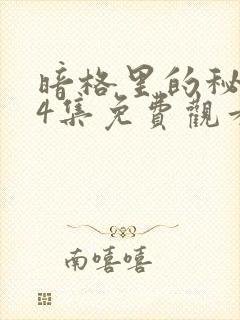 暗格里的秘
4集免費觀
南嘻嘻